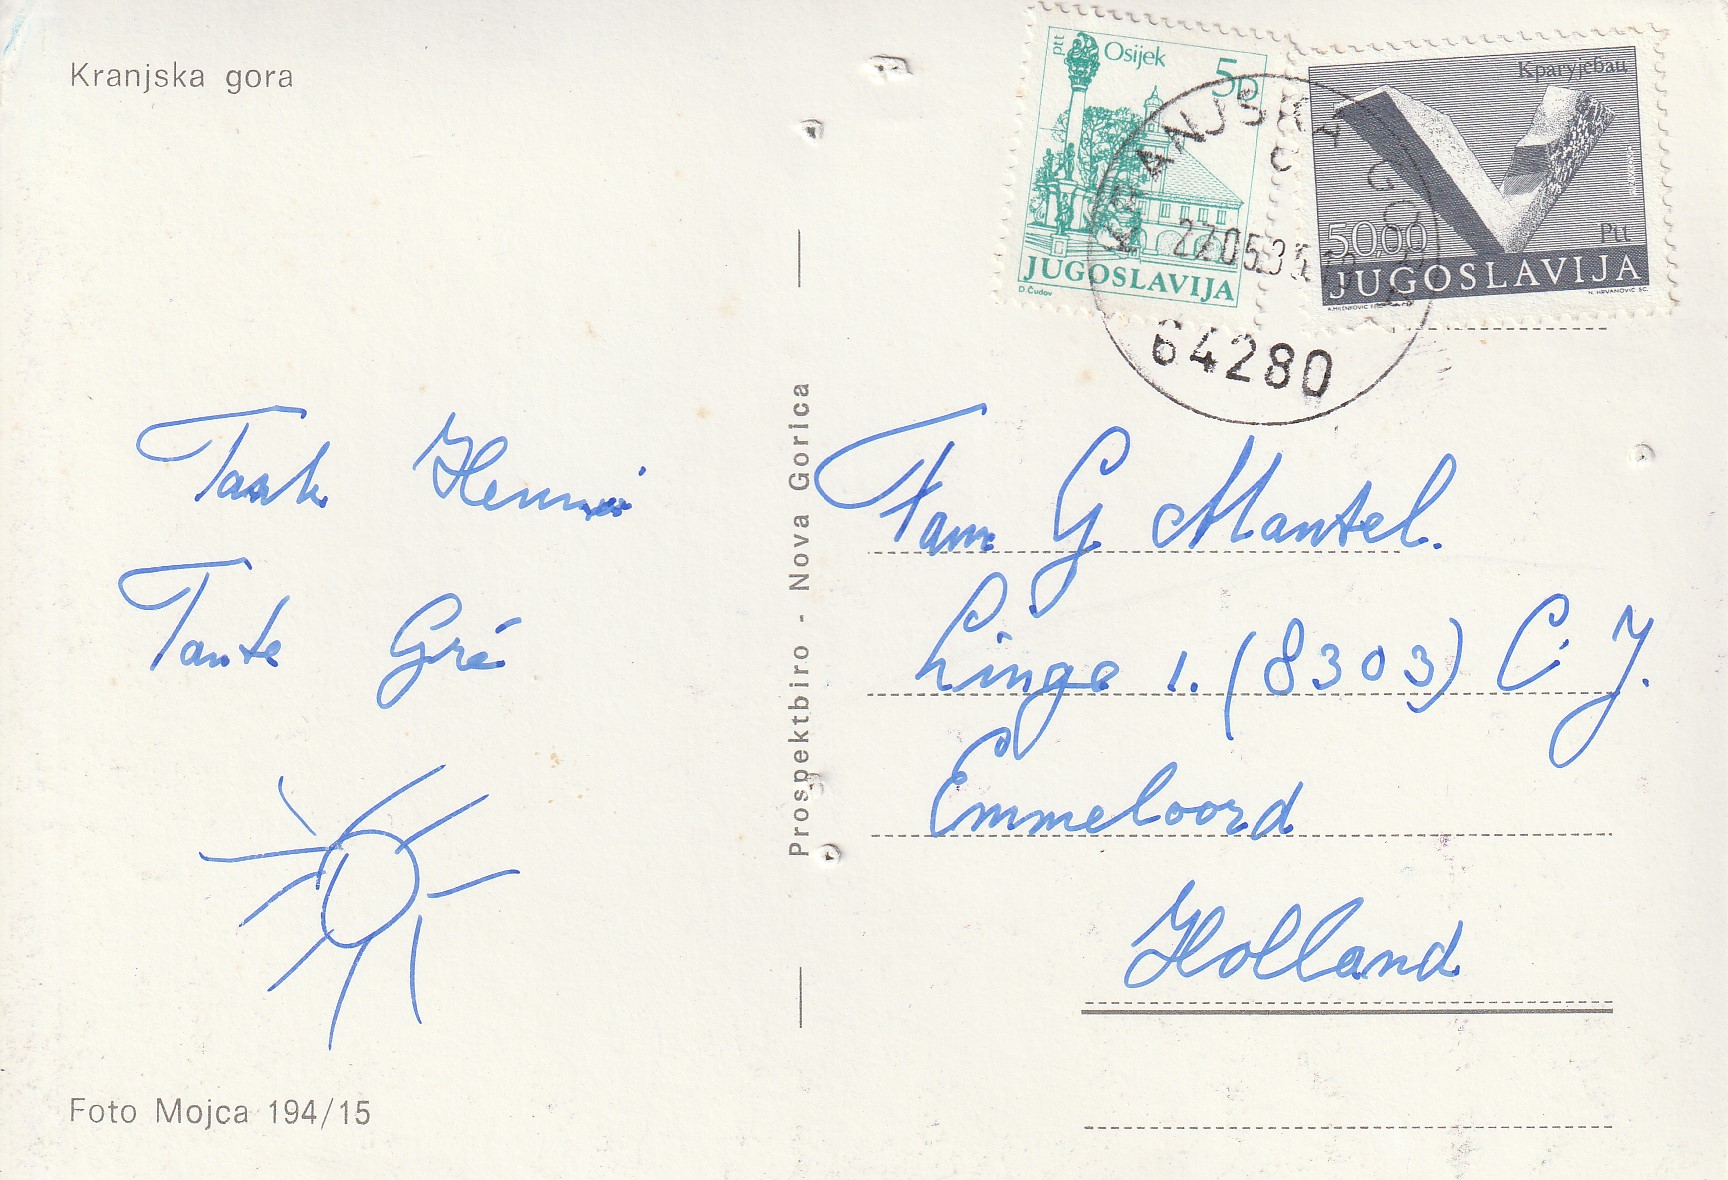 Kranjska gora
ptt Osijek 5D
JUGOSLAVIJA
D. Čudov
Крагујевац
50,00 Ptt
JUGOSLAVIJA
KRANJSKA GORA
64280
Prospektbiro - Nova Gorica
Tante Gré
Fam G Mantel.
Linge 1. (8303) C J.
Emmeloord
Holland
Foto Mojca 194/15